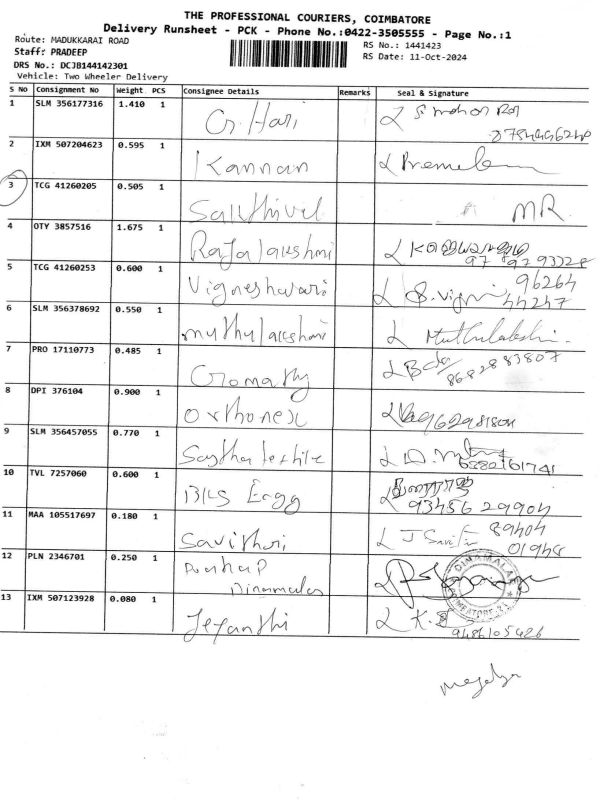 THE PROFESSIONAL COURIERS, COIMBATORE
Delivery Runsheet - PCK - Phone No.:0422-3505555 - Page No.:1
Route: MADUKKARAI ROAD
RS No.: 1441423
Staff: PRADEEP
RS Date: 11-Oct-2024
DRS No.: DCJB144142301
Vehicle: Two Wheeler Delivery
S No Consignment No Weight PCS Consignee Details Remarks Seal & Signature
1 SLM 356177316 1.410 1 G. Hari
2 IXM 507204623 0.595 1 Kannan
3 TCG 41260205 0.505 1 Sakthivel MR
4 OTY 3857516 1.675 1 Rajalakshmi
5 TCG 41260253 0.600 1 Vigneshwari 96264
44247
6 SLM 356378692 0.550 1 muthulakshmi Muthulakshmi
7 PRO 17110773 0.485 1 Gomathy 8682883807
8 DPI 376104 0.900 1 Orthonex
9 SLM 356457055 0.770 1 textile
10 TVL 7257060 0.600 1 Engg
93456 29904
11 MAA 105517697 0.180 1 Savithri J Savitri 89404
01948
12 PLN 2346701 0.250 1
Dinamalar
DINAMALAR
COIMBATORE
13 IXM 507123928 0.080 1 Jeyanthi K.
9486105426